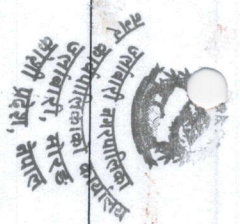 उर्लाबारी नगरपालिका
नगर कार्यपालिकाको कार्यालय
उर्लाबारी, मोरङ
कोशी प्रदेश, नेपाल